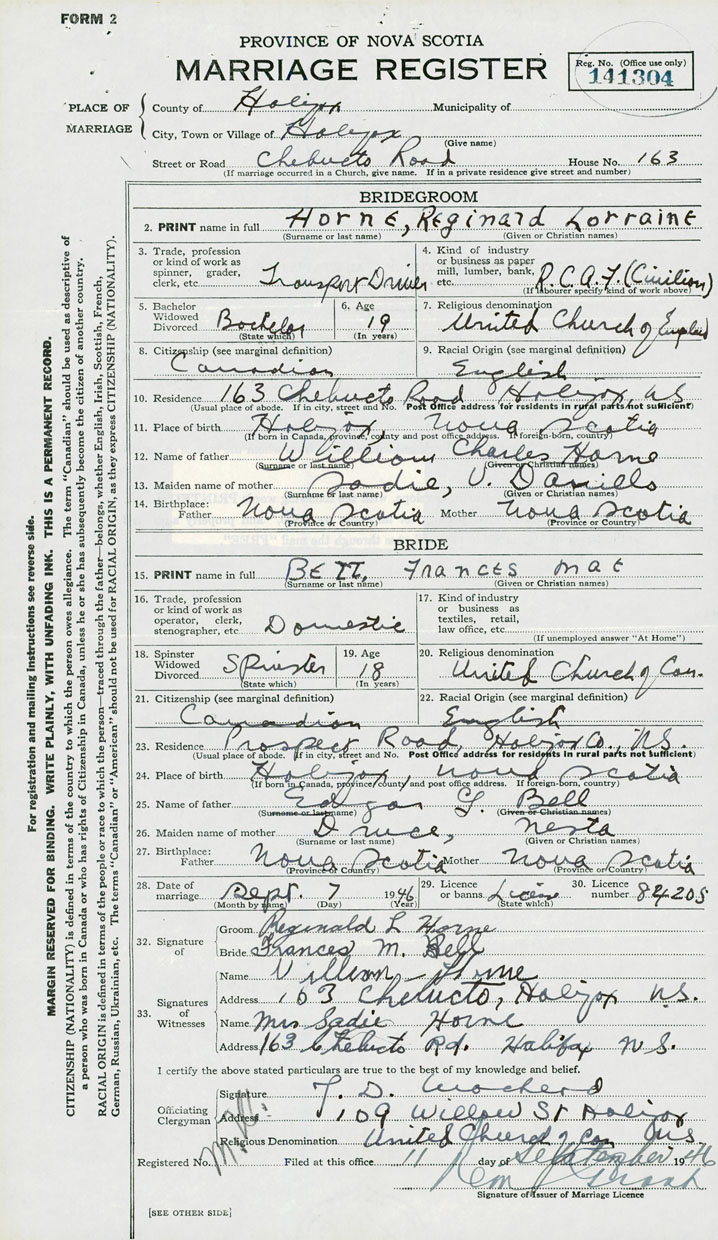 FORM 2
PROVINCE OF NOVA SCOTIA
MARRIAGE REGISTER
Reg. No. (Office use only)
141304
PLACE OF MARRIAGE
County of Halifax Municipality of
City, Town or Village of Halifax
(Give name)
Street or Road Chebucto Road House No. 163
(If marriage occurred in a Church, give name. If in a private residence give street and number)
BRIDEGROOM
2. PRINT name in full Horne, Reginard Lorraine
(Surname or last name) (Given or Christian names)
3. Trade, profession or kind of work as spinner, grader, clerk, etc. Transport Driver
4. Kind of industry or business as paper mill, lumber, bank, etc. R.C.A.F. (Civilion)
(If labourer specify kind of work above)
5. Bachelor Widowed Divorced Bachelor
(State which)
6. Age 19
(In years)
7. Religious denomination
United Church of England
8. Citizenship (see marginal definition)
Canadian
9. Racial Origin (see marginal definition)
English
10. Residence 163 Chebucto Road Halifax, N.S.
(Usual place of abode. If in city, street and No. Post Office address for residents in rural parts not sufficient)
11. Place of birth Halifax, Nova Scotia
(If born in Canada, province, county and post office address. If foreign-born, country)
12. Name of father William Charles Horne
(Surname or last name) (Given or Christian names)
13. Maiden name of mother Sadie, V.
(Surname or last name) (Given or Christian names)
14. Birthplace: Father Nova Scotia Mother Nova Scotia
(Province or Country) (Province or Country)
BRIDE
15. PRINT name in full Bell, Frances Mae
(Surname or last name) (Given or Christian names)
16. Trade, profession or kind of work as operator, clerk, stenographer, etc. Domestic
17. Kind of industry or business as textiles, retail, law office, etc.
(If unemployed answer "At Home")
18. Spinster Widowed Divorced Spinster
(State which)
19. Age 18
(In years)
20. Religious denomination
United Church of Can.
21. Citizenship (see marginal definition)
Canadian
22. Racial Origin (see marginal definition)
English
23. Residence Prospect Road, Halifax Co., N.S.
(Usual place of abode. If in city, street and No. Post Office address for residents in rural parts not sufficient)
24. Place of birth Halifax, Nova Scotia
(If born in Canada, province, county and post office address. If foreign-born, country)
25. Name of father Edgar G. Bell
(Surname or last name) (Given or Christian names)
26. Maiden name of mother Druce, Nesta
(Surname or last name) (Given or Christian names)
27. Birthplace: Father Nova Scotia Mother Nova Scotia
(Province or Country) (Province or Country)
28. Date of marriage Sept. 7 1946
(Month by name) (Day) (Year)
29. Licence or banns License
(State which)
30. Licence number 84205
32. Signature of
Groom Reginald L Horne
Bride Frances M. Bell
33. Signatures of Witnesses
Name William Horne
Address 163 Chebucto, Halifax N.S.
Name Mrs Sadie Horne
Address 163 Chebucto Rd. Halifax N.S.
I certify the above stated particulars are true to the best of my knowledge and belief.
Officiating Clergyman
Signature
Address 109 Willow St Halifax
Religious Denomination United Church of Can N.S
Registered No.
Filed at this office 11 day of September 1946
Signature of Issuer of Marriage Licence
[SEE OTHER SIDE]
For registration and mailing instructions see reverse side.
MARGIN RESERVED FOR BINDING. WRITE PLAINLY, WITH UNFADING INK. THIS IS A PERMANENT RECORD.
CITIZENSHIP (NATIONALITY) is defined in terms of the country to which the person owes allegiance. The term "Canadian" should be used as descriptive of
a person who was born in Canada or who has rights of Citizenship in Canada, unless he or she has subsequently become the citizen of another country.
RACIAL ORIGIN is defined in terms of the people or race to which the person—traced through the father—belongs, whether English, Irish, Scottish, French,
German, Russian, Ukrainian, etc. The terms "Canadian" or "American" should not be used for RACIAL ORIGIN, as they express CITIZENSHIP (NATIONALITY).